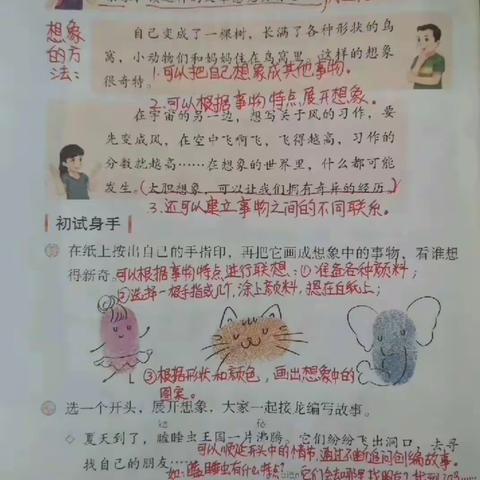 想象的方法：
自己变成了一棵树，长满了各种形状的鸟
窝，小动物们和妈妈住在鸟窝里，这样的想象
很奇特。1.可以把自己想象成其他事物。
2.可以根据事物特点，展开想象。
在宇宙的另一边，想写关于风的习作，要
先变成风，在空中飞啊飞，飞得越高，习作的
分数就越高……在想象的世界里，什么都可能
发生。(大胆想象，可以让我们拥有奇异的经历)
3.还可以建立事物之间的不同联系。
初试身手
在纸上按出自己的手指印，再把它画成想象中的事物，看谁想
得新奇。可以根据事物特点，进行联想：①准备各种颜料；
②选择一根手指或几个，涂上颜料，摁在白纸上；
③根据形状和颜色，画出想象中的
图案。
选一个开头，展开想象，大家一起接龙编写故事。
◇ 夏天到了，瞌睡虫王国一片沸腾。它们纷纷飞出洞口，去寻
找自己的朋友……可以顺延开头中的情节，通过不断追问创编故事。
如：瞌睡虫有什么特点？它们会去哪里找朋友？